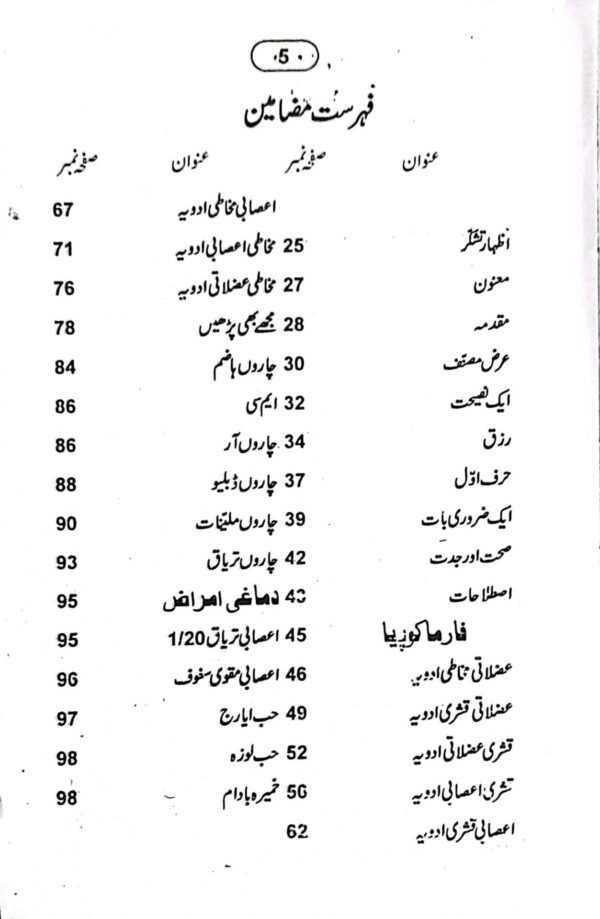 50
فہرست مضامین
عنوان صفحہ نمبر عنوان صفحہ نمبر
اعصابی مخاطی ادویہ 67
اظہارتشکّر 25 مخاطی اعصابی ادویہ 71
معنون 27 مخاطی عضلاتی ادویہ 76
مقدمہ 28 مجھے بھی پڑھیں 78
عرض مصنّف 30 چاروں ہاضم 84
ایک نصیحت 32 ایم سی 86
رزق 34 چاروں آر 86
حرف اوّل 37 چاروں ڈبلیو 88
ایک ضروری بات 39 چاروں ملیّنات 90
صحت اور جدت 42 چاروں تریاق 93
اصطلاحات 43 دماغی امراض 95
فارماکوپیا 45 اعصابی تریاق 1/20 95
عضلاتی مخاطی ادویہ 46 اعصابی مقوی سفوف 96
عضلاتی قشری ادویہ 49 حب ایارج 97
قشری عضلاتی ادویہ 52 حب لوزہ 98
قشری اعصابی ادویہ 56 خمیرہ بادام 98
اعصابی قشری ادویہ 62